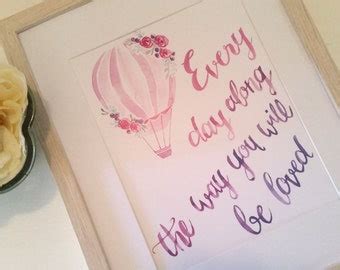 Every
day along
the way you will
be loved